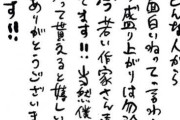 んな人から
面白いねって言わ
盛り上がりは勿
今若い作家さん
てます!!当然僕
って貰えると嬉しい
ありがとうございま
す!!